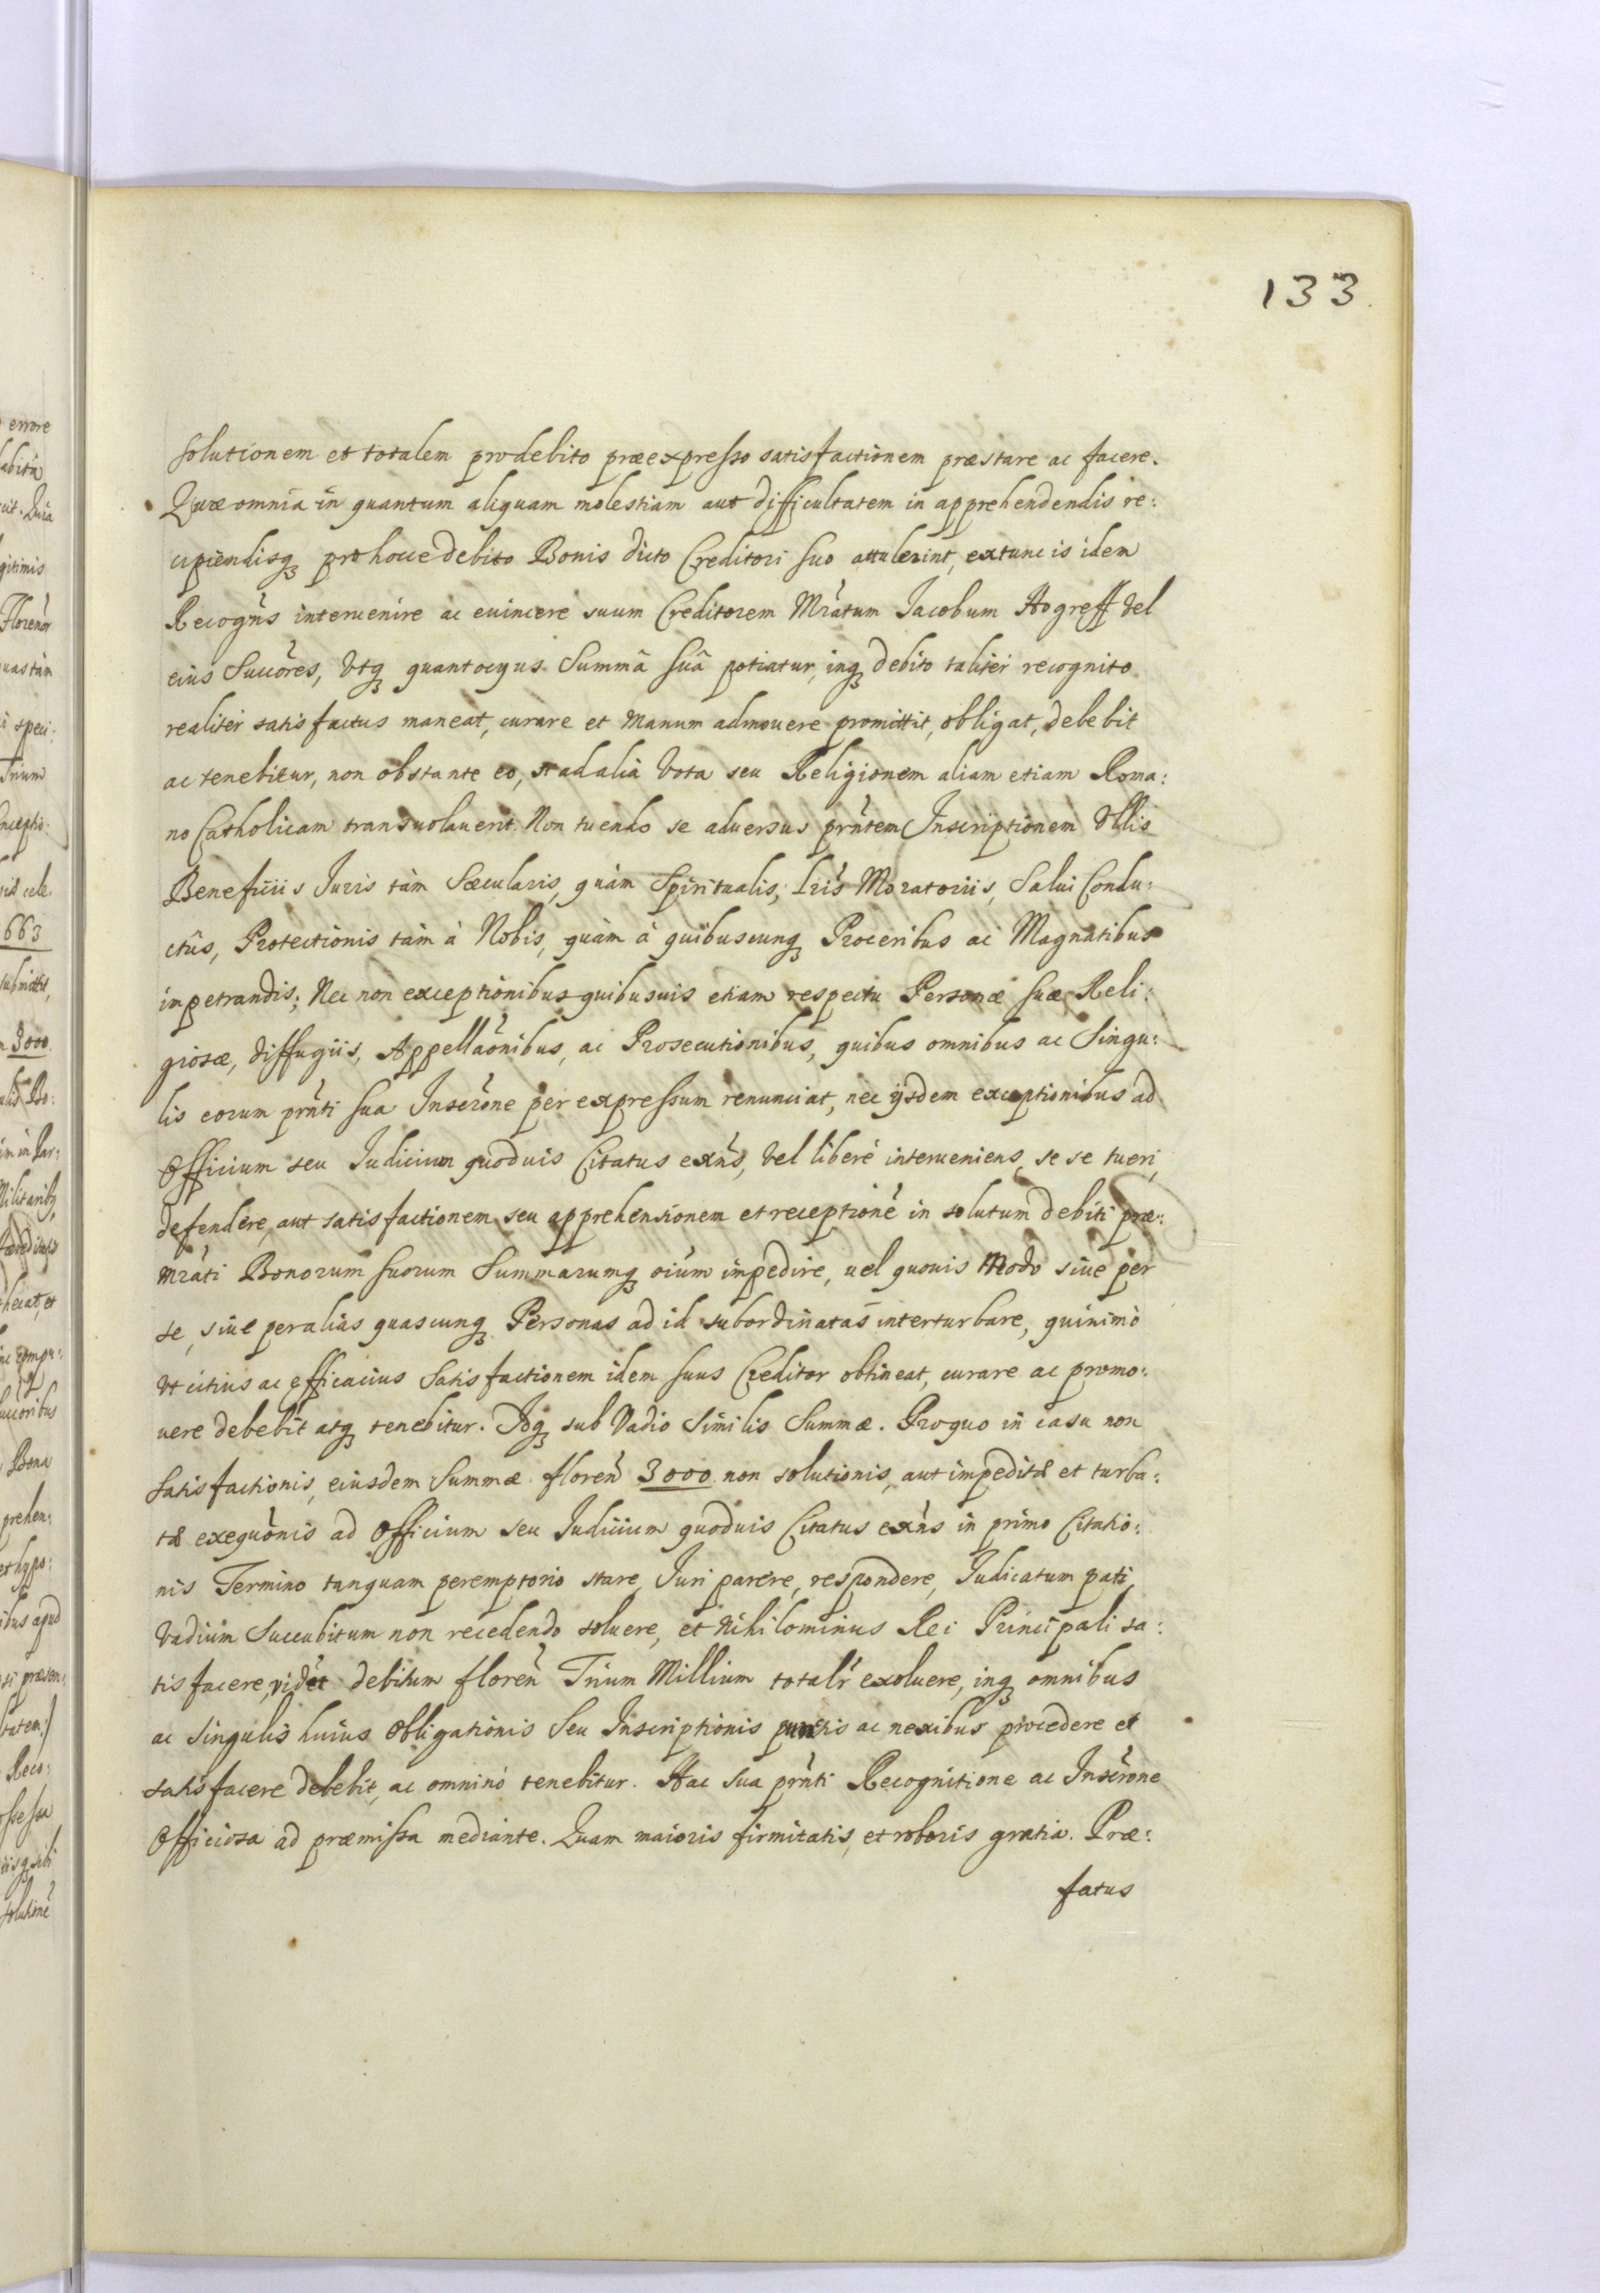 133
solutionem et totalem pro debito præexpresso satisfactionem præstare ac facere.
Quæ omnia in quantum aliquam molestiam aut difficultatem in apprehendendis re:
cipiendisq₃ pro hocce debito Bonis dicto Creditori suo attulerint, extunc is idem
Recogn̄s intervenire ac euincere suum Creditorem Mr̄atum Jacobum Hogreff vel
eius Succōres, Vtq₃ quantocyus Summâ suâ potiatur, inq₃ debito taliter recognito
realiter satisfactus maneat, curare et Manum admouere promittit, obligat, debebit
ac tenebitur, non obstante eo, si ad alia Vota seu Religionem aliam etiam Roma:
no Catholicam transuolauerit. Non tuendo se aduersus prn̄tem Inscriptionem Vllis
Beneficiis Juris tàm Sæcularis, quàm Spiritualis, Lrīs Moratoriis, Salui Condu:
ctûs, Protectionis tàm à Nobis, quàm à quibuscunq₃ Proceribus ac Magnatibus
impetrandis; Nec non exceptionibus quibusuis etiam respectu Personæ suæ Reli:
giosæ, diffugiis, Appellāonibus, ac Prosecutionibus, quibus omnibus ac Singu:
lis eorum prn̄ti sua Inscrōne per expressum renunciat, nec ijsdem exceptionibus ad
Officium seu Judicium quoduis Citatus exn̄s, vel liberè interueniens, se se tueri,
defendere, aut satisfactionem seu apprehensionem et receptionē in solutum debiti præ:
mr̄ati Bonorum suorum Summarumq₃ oīum impedire, uel quouis Modo siue per
se, siue per alias quascunq₃ Personas ad id subordinatas interturbare, quinimò
vt citius ac efficacius Satisfactionem idem suus Creditor obtineat, curare ac promo:
uere debebit atq₃ tenebitur. Idq₃ sub Vadio Similis Summæ. Pro quo in casu non
satisfactionis, eiusdem Summæ floren̄ 3000 non solutionis, aut impeditæ et turba:
tæ exequōnis ad Officium seu Judicium quoduis Citatus exn̄s in primo Citatio:
nis Termino tanquam peremptorio stare, Juri parere, respondere, Judicatum pati,
Vadium Succubitum non recedendo soluere, et Nihilominus Rei Principali sa:
tisfacere, vidēt debitum floren̄ Trium Millium totalr̄ exoluere, inq₃ omnibus
ac singulis huius Obligationis seu Inscriptionis punctis ac nexibus procedere et
satisfacere debebit, ac omninò tenebitur. Hac sua prn̄ti Recognitione ac Inscrōne
Officiosa ad præmissa mediante. Quam maioris firmitatis, et roboris gratia. Præ:
fatus